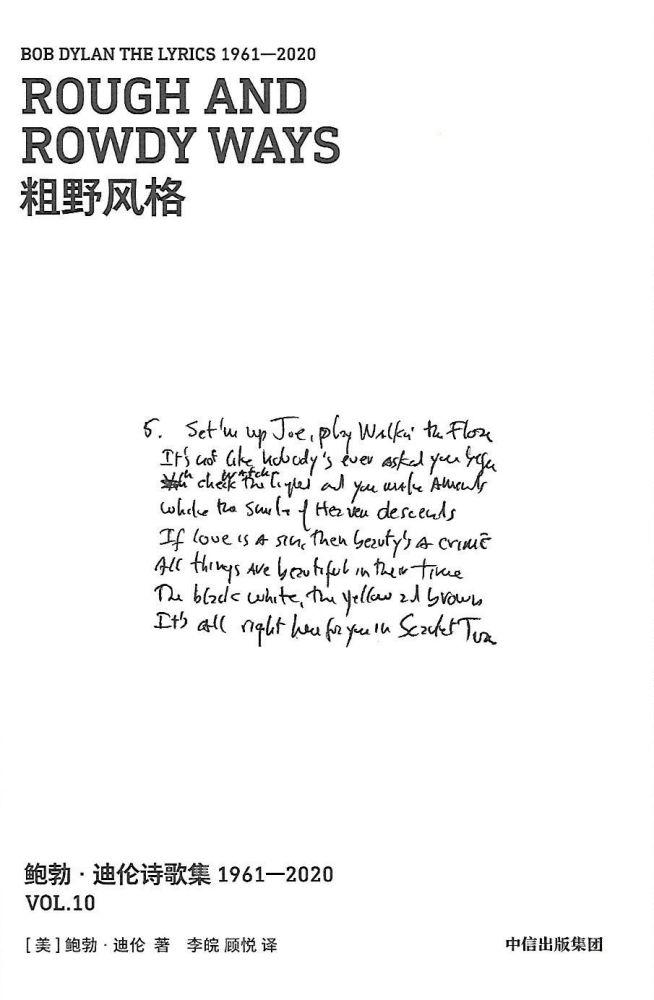 BOB DYLAN THE LYRICS 1961—2020
ROUGH AND
ROWDY WAYS
粗野风格
5. Set'm up Joe, play Walkin the Floor
It's not like nobody's ever asked you before
check the and you make Amends
While the smile of Heaven descends
If love is a sin, then beauty's a crime
All things are beautiful in their time
The black white, the yellow and brown
It's all right here for you in Scarlet Town
鲍勃·迪伦诗歌集 1961—2020
VOL.10
[美]鲍勃·迪伦 著 李皖 顾悦 译
中信出版集团